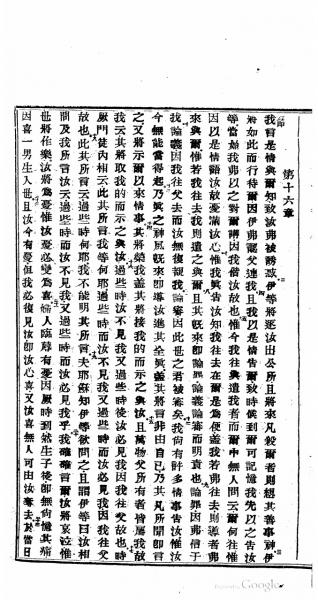 第十六章
我言是情與爾知致汝弗被誘惑伊等將逐汝出公所且將來凡殺爾者則想其善事神伊
將如此而行待爾因伊弗識父連我且我以是情告爾致時候到爾可記憶我先以之告汝
等當始我弗以之對爾講因我偕汝故也惟今我往與遣我者而爾中無人問云爾何往惟
因以是情語汝故憂滿汝心惟我眞告汝知我往去在爾是爲便蓋我若弗往去則導者弗
來與爾惟若我往去我則遣之與爾且其旣來卽論罪論義論審而明責也論罪因弗信于
我論義因我往父而汝無復覩我論審因此世之君被審矣我尚有許多情事告汝惟汝
今無能當得起乃眞之神風旣來卽導汝進其全眞蓋其將言非由自己乃其凡所聞卽言
之又將示爾以來情事其將榮我蓋其將接我的而示之與汝且萬物父所有者皆屬我故
我云其將取我的而示之與汝過些時汝不見我又過些時後汝必見我因我往父故也時
厥門徒內相云此其所言我等何耶過些時而汝不見我又過些時而汝必見我又因我往父
故也此其所言云過些時何耶我不能明其所言夫耶穌知伊等欲問之且謂伊等曰汝相
問及我所言汝云過些時而汝不見我又過些時而汝必見我乎我確確言爾汝將哀泣惟
世將作樂汝將爲憂惟汝憂必變爲喜婦人臨厥有憂因厥時到然生子後卽無尚憶其痛
因喜一男生人世且汝今有憂但我必復見汝卽汝心喜又汝喜無人可由汝奪去於當日
Google